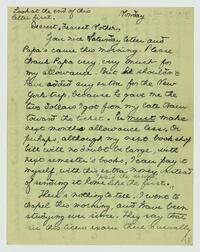 Look at the end of this
letter first.
Monday
Dearest, Dearest Mother,
Your nice Saturday letter and
Papa's came this morning. Please
thank Papa very, very much for
my allowance. But he shouldn't
have added any extra for the New
York trip because I gave me the
two dollars I got from my
toward the ticket. He must make
next month's allowance less, or
perhaps, although my next book shop
bill will no doubt be large, with
next semester's books, I can pay it
myself, with this extra money, instead
of sending it home like the first.
There's nothing to tell. I went to
chapel this morning, and have been
studying ever since. They say that
in all exam there is usually